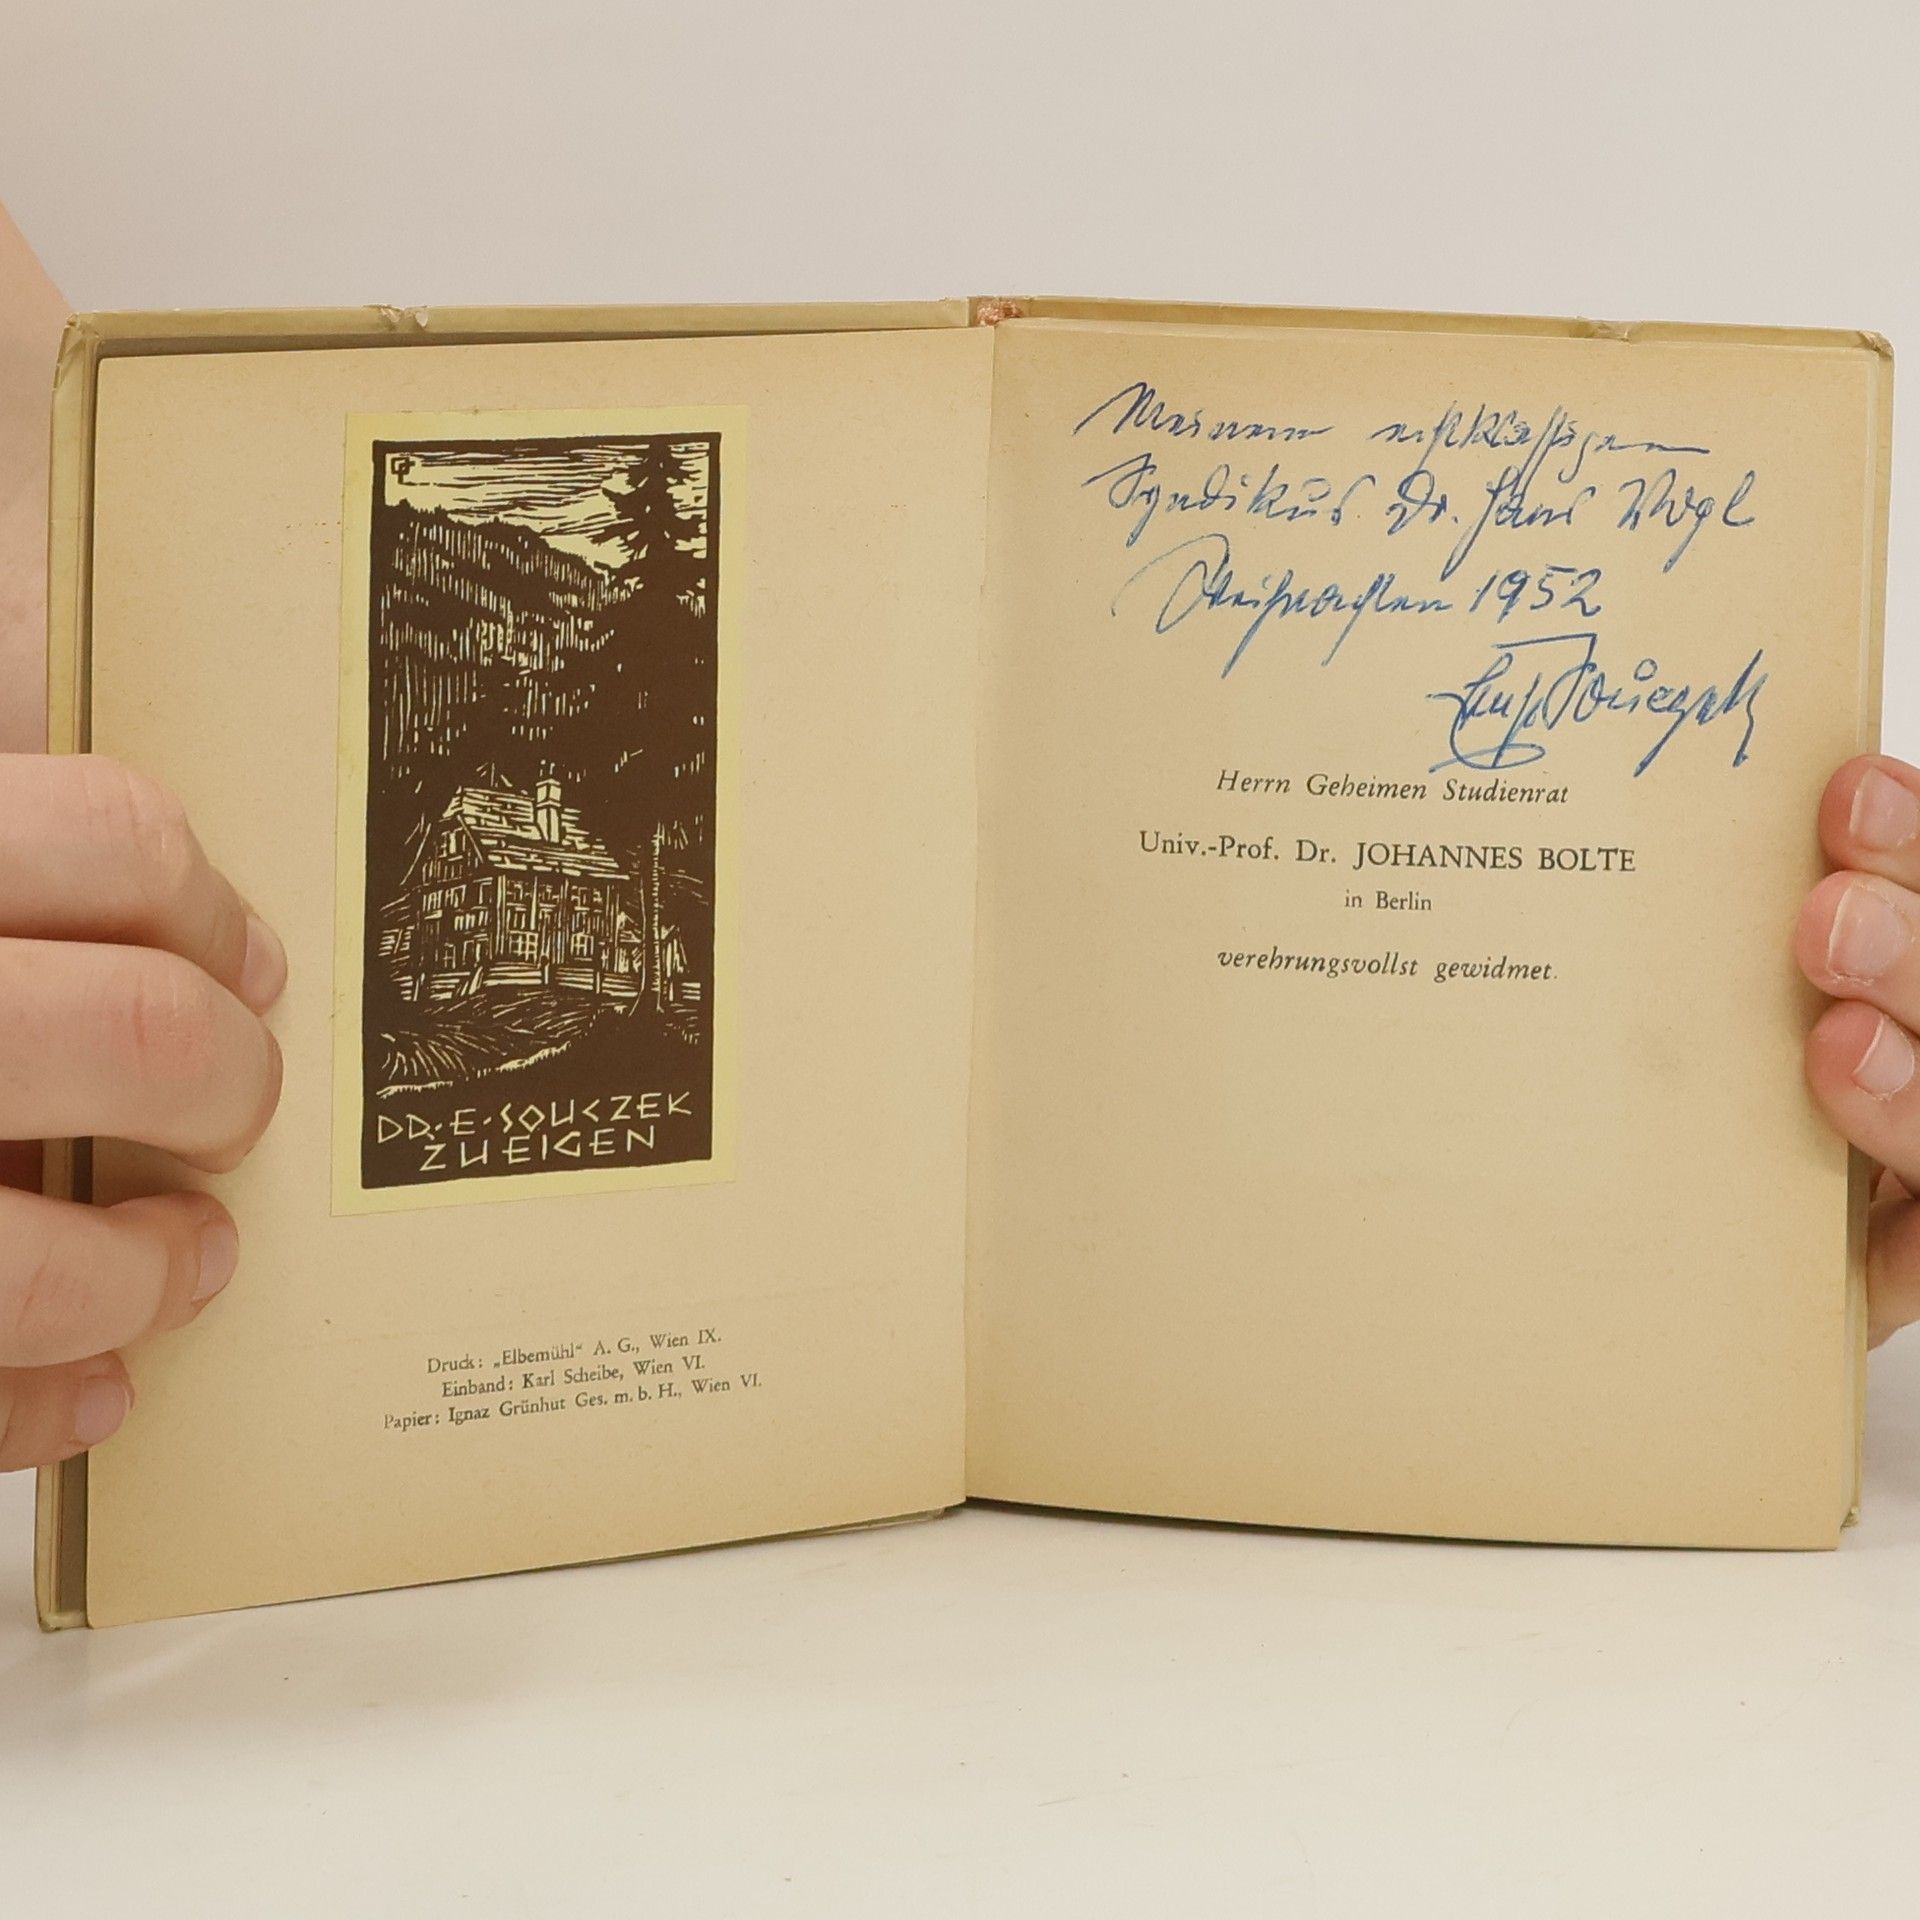 DR·E·SOUCZEK
ZU EIGEN
Druck: „Elbemühl“ A. G., Wien IX.
Einband: Karl Scheibe, Wien VI.
Papier: Ignaz Grünhut Ges. m. b. H., Wien VI.
Meinem erstklassigen
Syndikus Dr. Hans Vogl
Weihnachten 1952
Souczek
Herrn Geheimen Studienrat
Univ.-Prof. Dr. JOHANNES BOLTE
in Berlin
verehrungsvollst gewidmet.